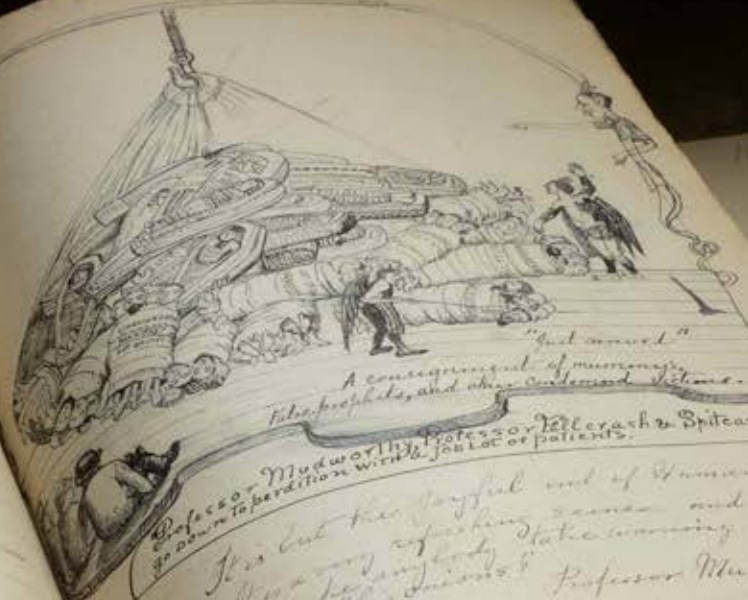 "Just arrived"
A consignment of mummeys,
False prophets, and other condemned victims.
Professor Mudworthy, Professor Tellcrash & Spitea
go down to perdition with a job lot of patients.
It is but the joyful end of
It is a very refreshing scene and
be anybody take warning
onions"
Professor Mu